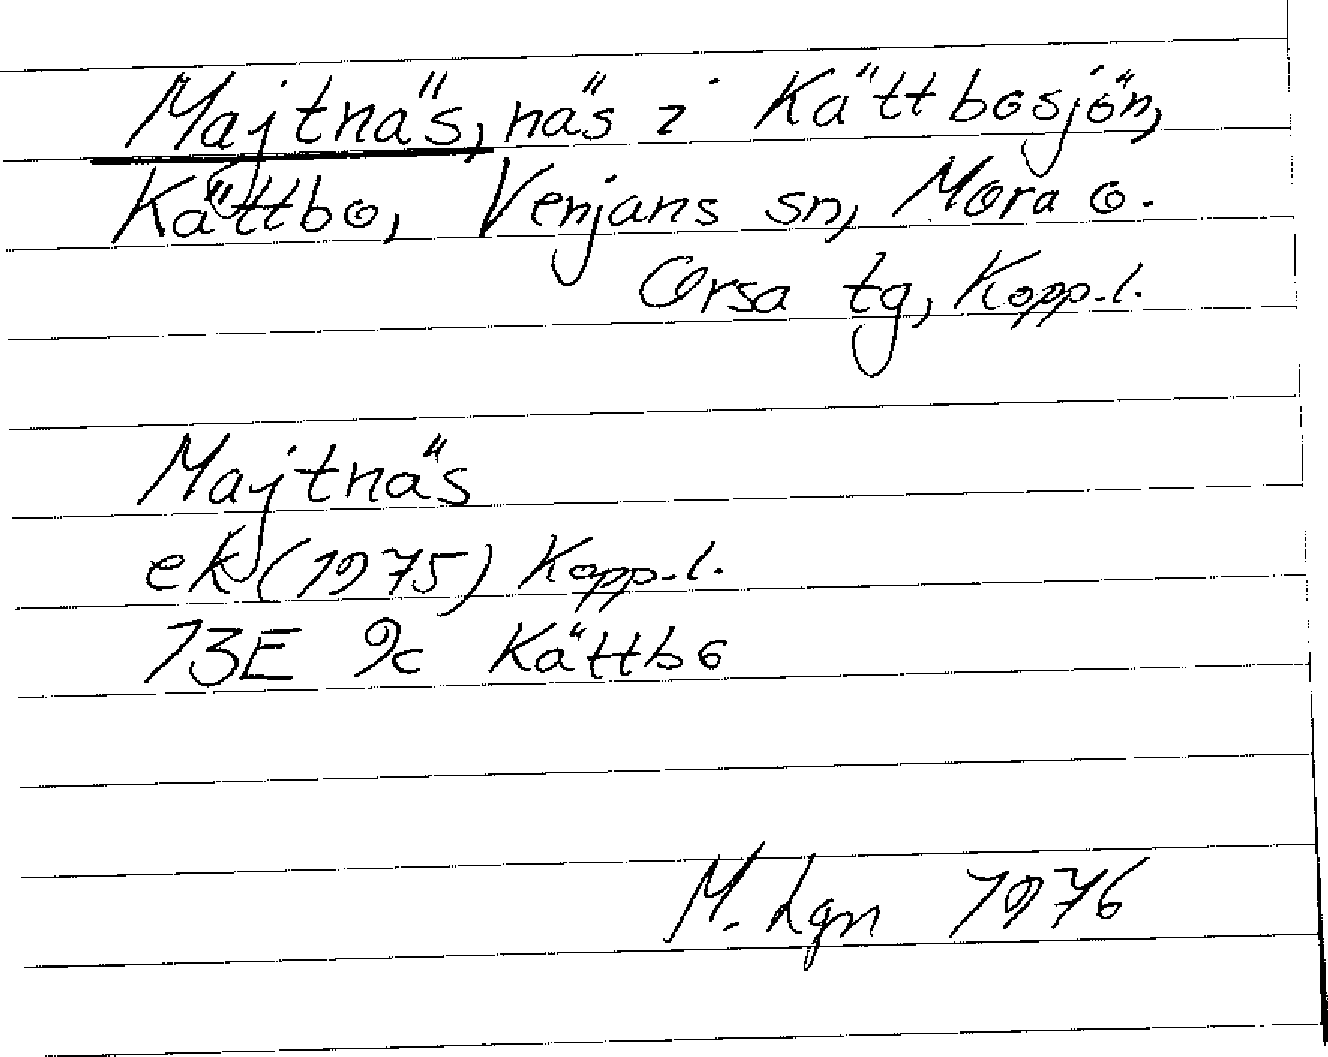 Majtnäs, näs i Kättbosjön,
Kättbo, Venjans sn, Mora o.
Orsa tg, Kopp.l.
Majtnäs
ek (1975) Kopp.l.
13E 9c Kättbo
M. Lgn 1976